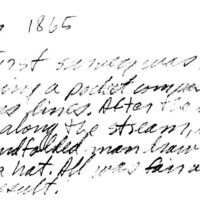 1865
first survey was
ing a pocket compass
es lines. After the
along the stream,
ndfolded man draw
a hat. All was fair a
result.